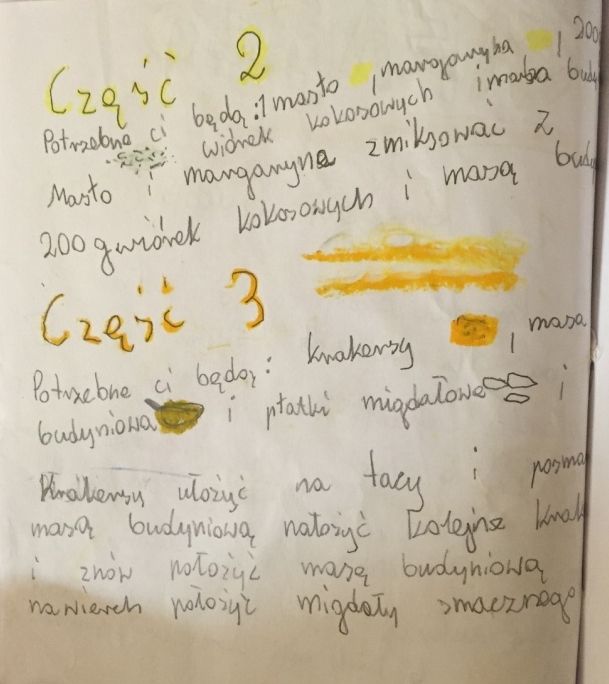 Część 2
Potrzebne ci będą: 1 masło, margaryna, 200
wiórek kokosowych i masa budy
Masło i margarynę zmiksować z
200g wiórek kokosowych i masą budy
Część 3
Potrzebne ci będą: krakersy, masa
budyniowa i płatki migdałowe i
Krakersy ułożyć na tacy i posma
masą budyniową nałożyć kolejne krak
i znów położyć masę budyniową
na wierch położyć migdały smacznego